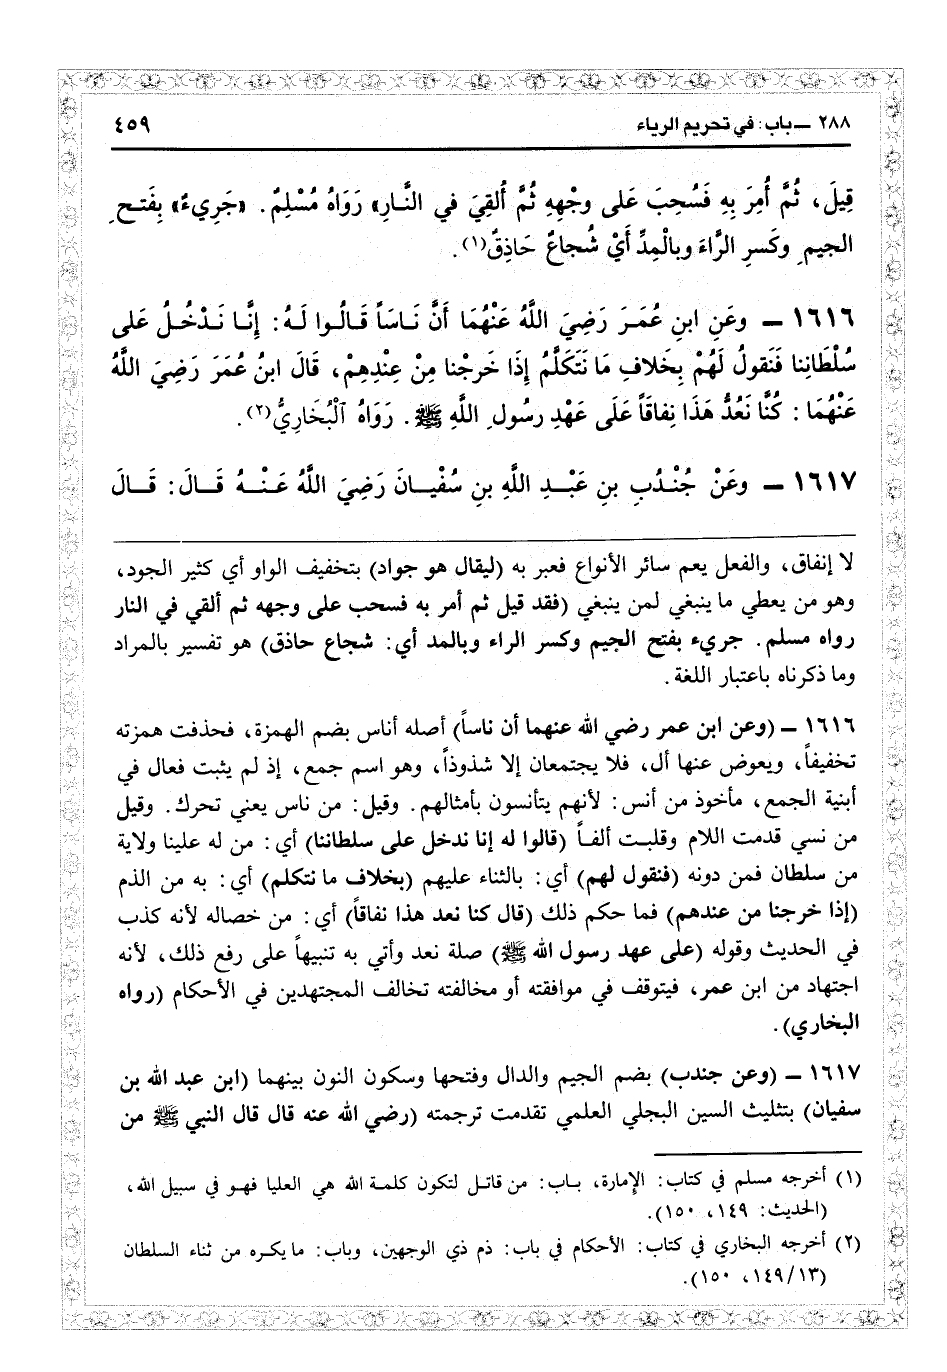 ٢٨٨ ـ باب: في تحريم الرياء ٤٥٩
قِيلَ، ثُمَّ أُمِرَ بِهِ فَسُحِبَ عَلى وجْهِهِ ثُمَّ أُلقِيَ في النَّارِ» رَوَاهُ مُسْلِمٌ. «جَرِيءٌ» بِفَتحِ
الجيمِ وكَسرِ الرَّاءَ وبالْمِدِّ أَيْ شُجاعٌ حَاذِقٌ(١).
١٦١٦ ـ وعَنِ ابنِ عُمَرَ رَضِيَ اللَّهُ عَنْهُمَا أَنَّ نَاسَاً قَالُوا لَهُ: إِنَّا نَدْخُلُ عَلى
سُلْطَانِنا فَنَقولُ لَهُمْ بِخَلافِ مَا نَتَكَلَّمُ إِذَا خَرجْنا مِنْ عِندِهِمْ، قَالَ ابنُ عُمَرَ رَضِيَ اللَّهُ
عَنْهُمَا: كُنَّا نَعُدُّ هَذَا نِفاقَاً عَلَى عَهْدِ رسُولِ اللَّهِ ﷺ. رَوَاهُ ٱلْبُخَارِيُّ(٢).
١٦١٧ ـ وعَنْ جُنْدُبِ بنِ عَبْدِ اللَّهِ بنِ سُفْيانَ رَضِيَ اللَّهُ عَنْهُ قَالَ: قَالَ
لا إنفاق، والفعل يعم سائر الأنواع فعبر به (ليقال هو جواد) بتخفيف الواو أي كثير الجود،
وهو من يعطي ما ينبغي لمن ينبغي (فقد قيل ثم أمر به فسحب على وجهه ثم ألقي في النار
رواه مسلم. جريء بفتح الجيم وكسر الراء وبالمد أي: شجاع حاذق) هو تفسير بالمراد
وما ذكرناه باعتبار اللغة.
١٦١٦ ـ (وعن ابن عمر رضي الله عنهما أن ناساً) أصله أناس بضم الهمزة، فحذفت همزته
تخفيفاً، ويعوض عنها أل، فلا يجتمعان إلا شذوذاً، وهو اسم جمع، إذ لم يثبت فعال في
أبنية الجمع، مأخوذ من أنس: لأنهم يتأنسون بأمثالهم. وقيل: من ناس يعني تحرك. وقيل
من نسي قدمت اللام وقلبت ألفاً (قالوا له إنا ندخل على سلطاننا) أي: من له علينا ولاية
من سلطان فمن دونه (فنقول لهم) أي: بالثناء عليهم (بخلاف ما نتكلم) أي: به من الذم
(إذا خرجنا من عندهم) فما حكم ذلك (قال كنا نعد هذا نفاقاً) أي: من خصاله لأنه كذب
في الحديث وقوله (على عهد رسول الله ﷺ) صلة نعد وأتي به تنبيهاً على رفع ذلك، لأنه
اجتهاد من ابن عمر، فيتوقف في موافقته أو مخالفته تخالف المجتهدين في الأحكام (رواه
البخاري).
١٦١٧ ـ (وعن جندب) بضم الجيم والدال وفتحها وسكون النون بينهما (ابن عبد الله بن
سفيان) بتثليث السين البجلي العلمي تقدمت ترجمته (رضي الله عنه قال قال النبي ﷺ من
(١) أخرجه مسلم في كتاب: الإمارة، باب: من قاتل لتكون كلمة الله هي العليا فهو في سبيل الله،
(الحديث: ١٤٩، ١٥٠).
(٢) أخرجه البخاري في كتاب: الأحكام في باب: ذم ذي الوجهين، وباب: ما يكره من ثناء السلطان
(١٤٩/١٣، ١٥٠).